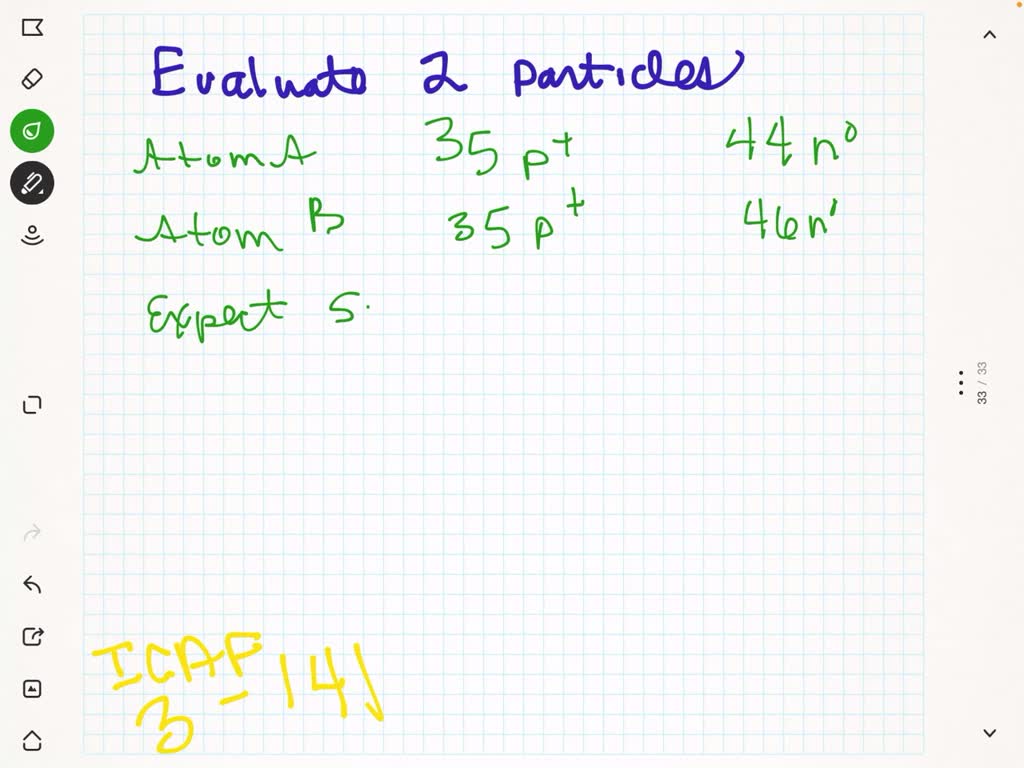 Evaluate 2 particles
Atom A 35 p+ 44 n⁰
Atom B 35 p+ 46 n
Expect S
33 / 33
3 - 141